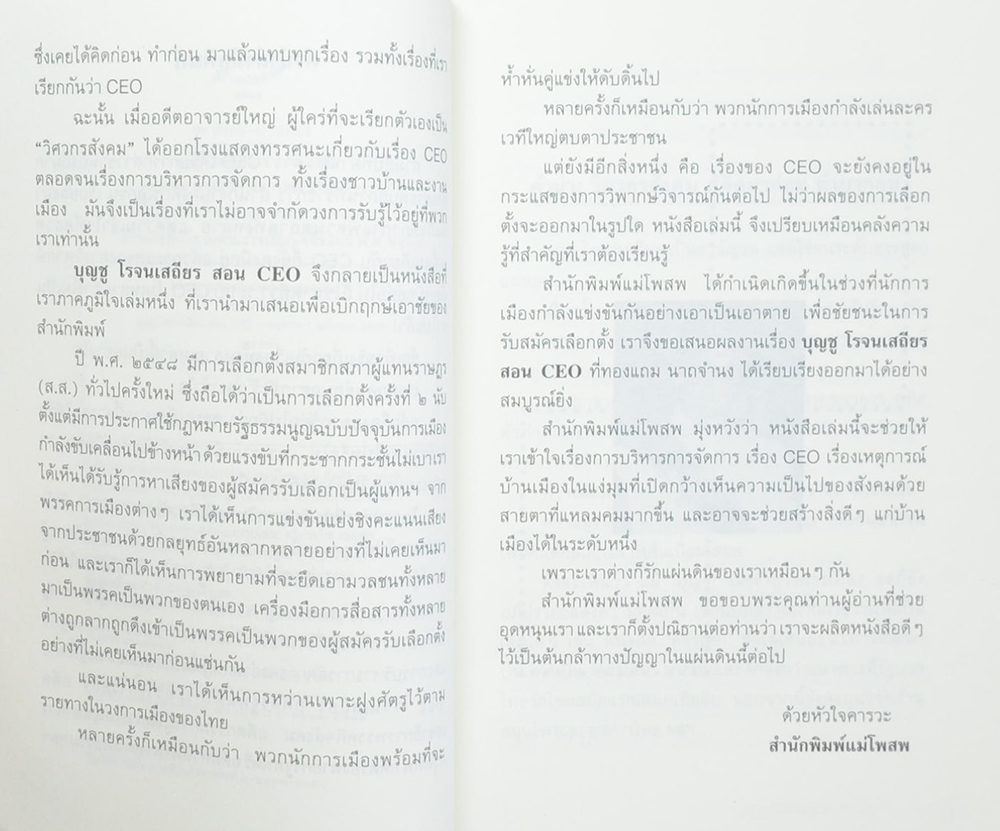 ซึ่งเคยได้คิดก่อน ทำก่อน มาแล้วแทบทุกเรื่อง รวมทั้งเรื่องที่เรา
เรียกกันว่า CEO
ฉะนั้น เมื่ออดีตอาจารย์ใหญ่ ผู้ใคร่ที่จะเรียกตัวเองเป็น
“วิศวกรสังคม” ได้ออกโรงแสดงทรรศนะเกี่ยวกับเรื่อง CEO
ตลอดจนเรื่องการบริหารการจัดการ ทั้งเรื่องชาวบ้านและงาน
เมือง มันจึงเป็นเรื่องที่เราไม่อาจจำกัดวงการรับรู้ไว้อยู่ที่พวก
เราเท่านั้น
บุญชู โรจนเสถียร สอน CEO จึงกลายเป็นหนังสือที่
เราภาคภูมิใจเล่มหนึ่ง ที่เรานำมาเสนอเพื่อเบิกฤกษ์เอาชัยของ
สำนักพิมพ์
ปี พ.ศ. ๒๕๔๘ มีการเลือกตั้งสมาชิกสภาผู้แทนราษฎร
(ส.ส.) ทั่วไปครั้งใหม่ ซึ่งถือได้ว่าเป็นการเลือกตั้งครั้งที่ ๒ นับ
ตั้งแต่มีการประกาศใช้กฎหมายรัฐธรรมนูญฉบับปัจจุบันการเมือง
กำลังขับเคลื่อนไปข้างหน้า ด้วยแรงขับที่กระชากกระชั้นไม่เบาเรา
ได้เห็นได้รับรู้การหาเสียงของผู้สมัครรับเลือกเป็นผู้แทนฯ จาก
พรรคการเมืองต่างๆ เราได้เห็นการแข่งขันแย่งชิงคะแนนเสียง
จากประชาชนด้วยกลยุทธ์อันหลากหลายอย่างที่ไม่เคยเห็นมา
ก่อน และเราก็ได้เห็นการพยายามที่จะยึดเอามวลชนทั้งหลาย
มาเป็นพรรคเป็นพวกของตนเอง เครื่องมือการสื่อสารทั้งหลาย
ต่างถูกลากถูกดึงเข้าเป็นพรรคเป็นพวกของผู้สมัครรับเลือกตั้ง
อย่างที่ไม่เคยเห็นมาก่อนเช่นกัน
และแน่นอน เราได้เห็นการหว่านเพาะฝูงศัตรูไว้ตาม
รายทางในวงการเมืองของไทย
หลายครั้งก็เหมือนกับว่า พวกนักการเมืองพร้อมที่จะ
ห้ำหั่นคู่แข่งให้ดับดิ้นไป
หลายครั้งก็เหมือนกับว่า พวกนักการเมืองกำลังเล่นละคร
เวทีใหญ่ตบตาประชาชน
แต่ยังมีอีกสิ่งหนึ่ง คือ เรื่องของ CEO จะยังคงอยู่ใน
กระแสของการวิพากษ์วิจารณ์กันต่อไป ไม่ว่าผลของการเลือก
ตั้งจะออกมาในรูปใด หนังสือเล่มนี้ จึงเปรียบเหมือนคลังความ
รู้ที่สำคัญที่เราต้องเรียนรู้
สำนักพิมพ์แม่โพสพ ได้กำเนิดเกิดขึ้นในช่วงที่นักการ
เมืองกำลังแข่งขันกันอย่างเอาเป็นเอาตาย เพื่อชัยชนะในการ
รับสมัครเลือกตั้ง เราจึงขอเสนอผลงานเรื่อง บุญชู โรจนเสถียร
สอน CEO ที่ทองแถม นาถจำนง ได้เรียบเรียงออกมาได้อย่าง
สมบูรณ์ยิ่ง
สำนักพิมพ์แม่โพสพ มุ่งหวังว่า หนังสือเล่มนี้จะช่วยให้
เราเข้าใจเรื่องการบริหารการจัดการ เรื่อง CEO เรื่องเหตุการณ์
บ้านเมืองในแง่มุมที่เปิดกว้างเห็นความเป็นไปของสังคมด้วย
สายตาที่แหลมคมมากขึ้น และอาจจะช่วยสร้างสิ่งดีๆ แก่บ้าน
เมืองได้ในระดับหนึ่ง
เพราะเราต่างก็รักแผ่นดินของเราเหมือนๆ กัน
สำนักพิมพ์แม่โพสพ ขอขอบพระคุณท่านผู้อ่านที่ช่วย
อุดหนุนเรา และเราก็ตั้งปณิธานต่อท่านว่า เราจะผลิตหนังสือดีๆ
ไว้เป็นต้นกล้าทางปัญญาในแผ่นดินนี้ต่อไป
ด้วยหัวใจคารวะ
สำนักพิมพ์แม่โพสพ